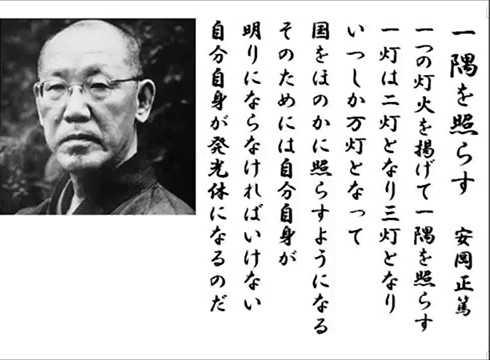 一隅を照らす 安岡正篤
一つの灯火を掲げて一隅を照らす
一灯は二灯となり三灯となり
いつしか万灯となって
国をほのかに照らすようになる
そのためには自分自身が
明りにならなければいけない
自分自身が発光体になるのだ